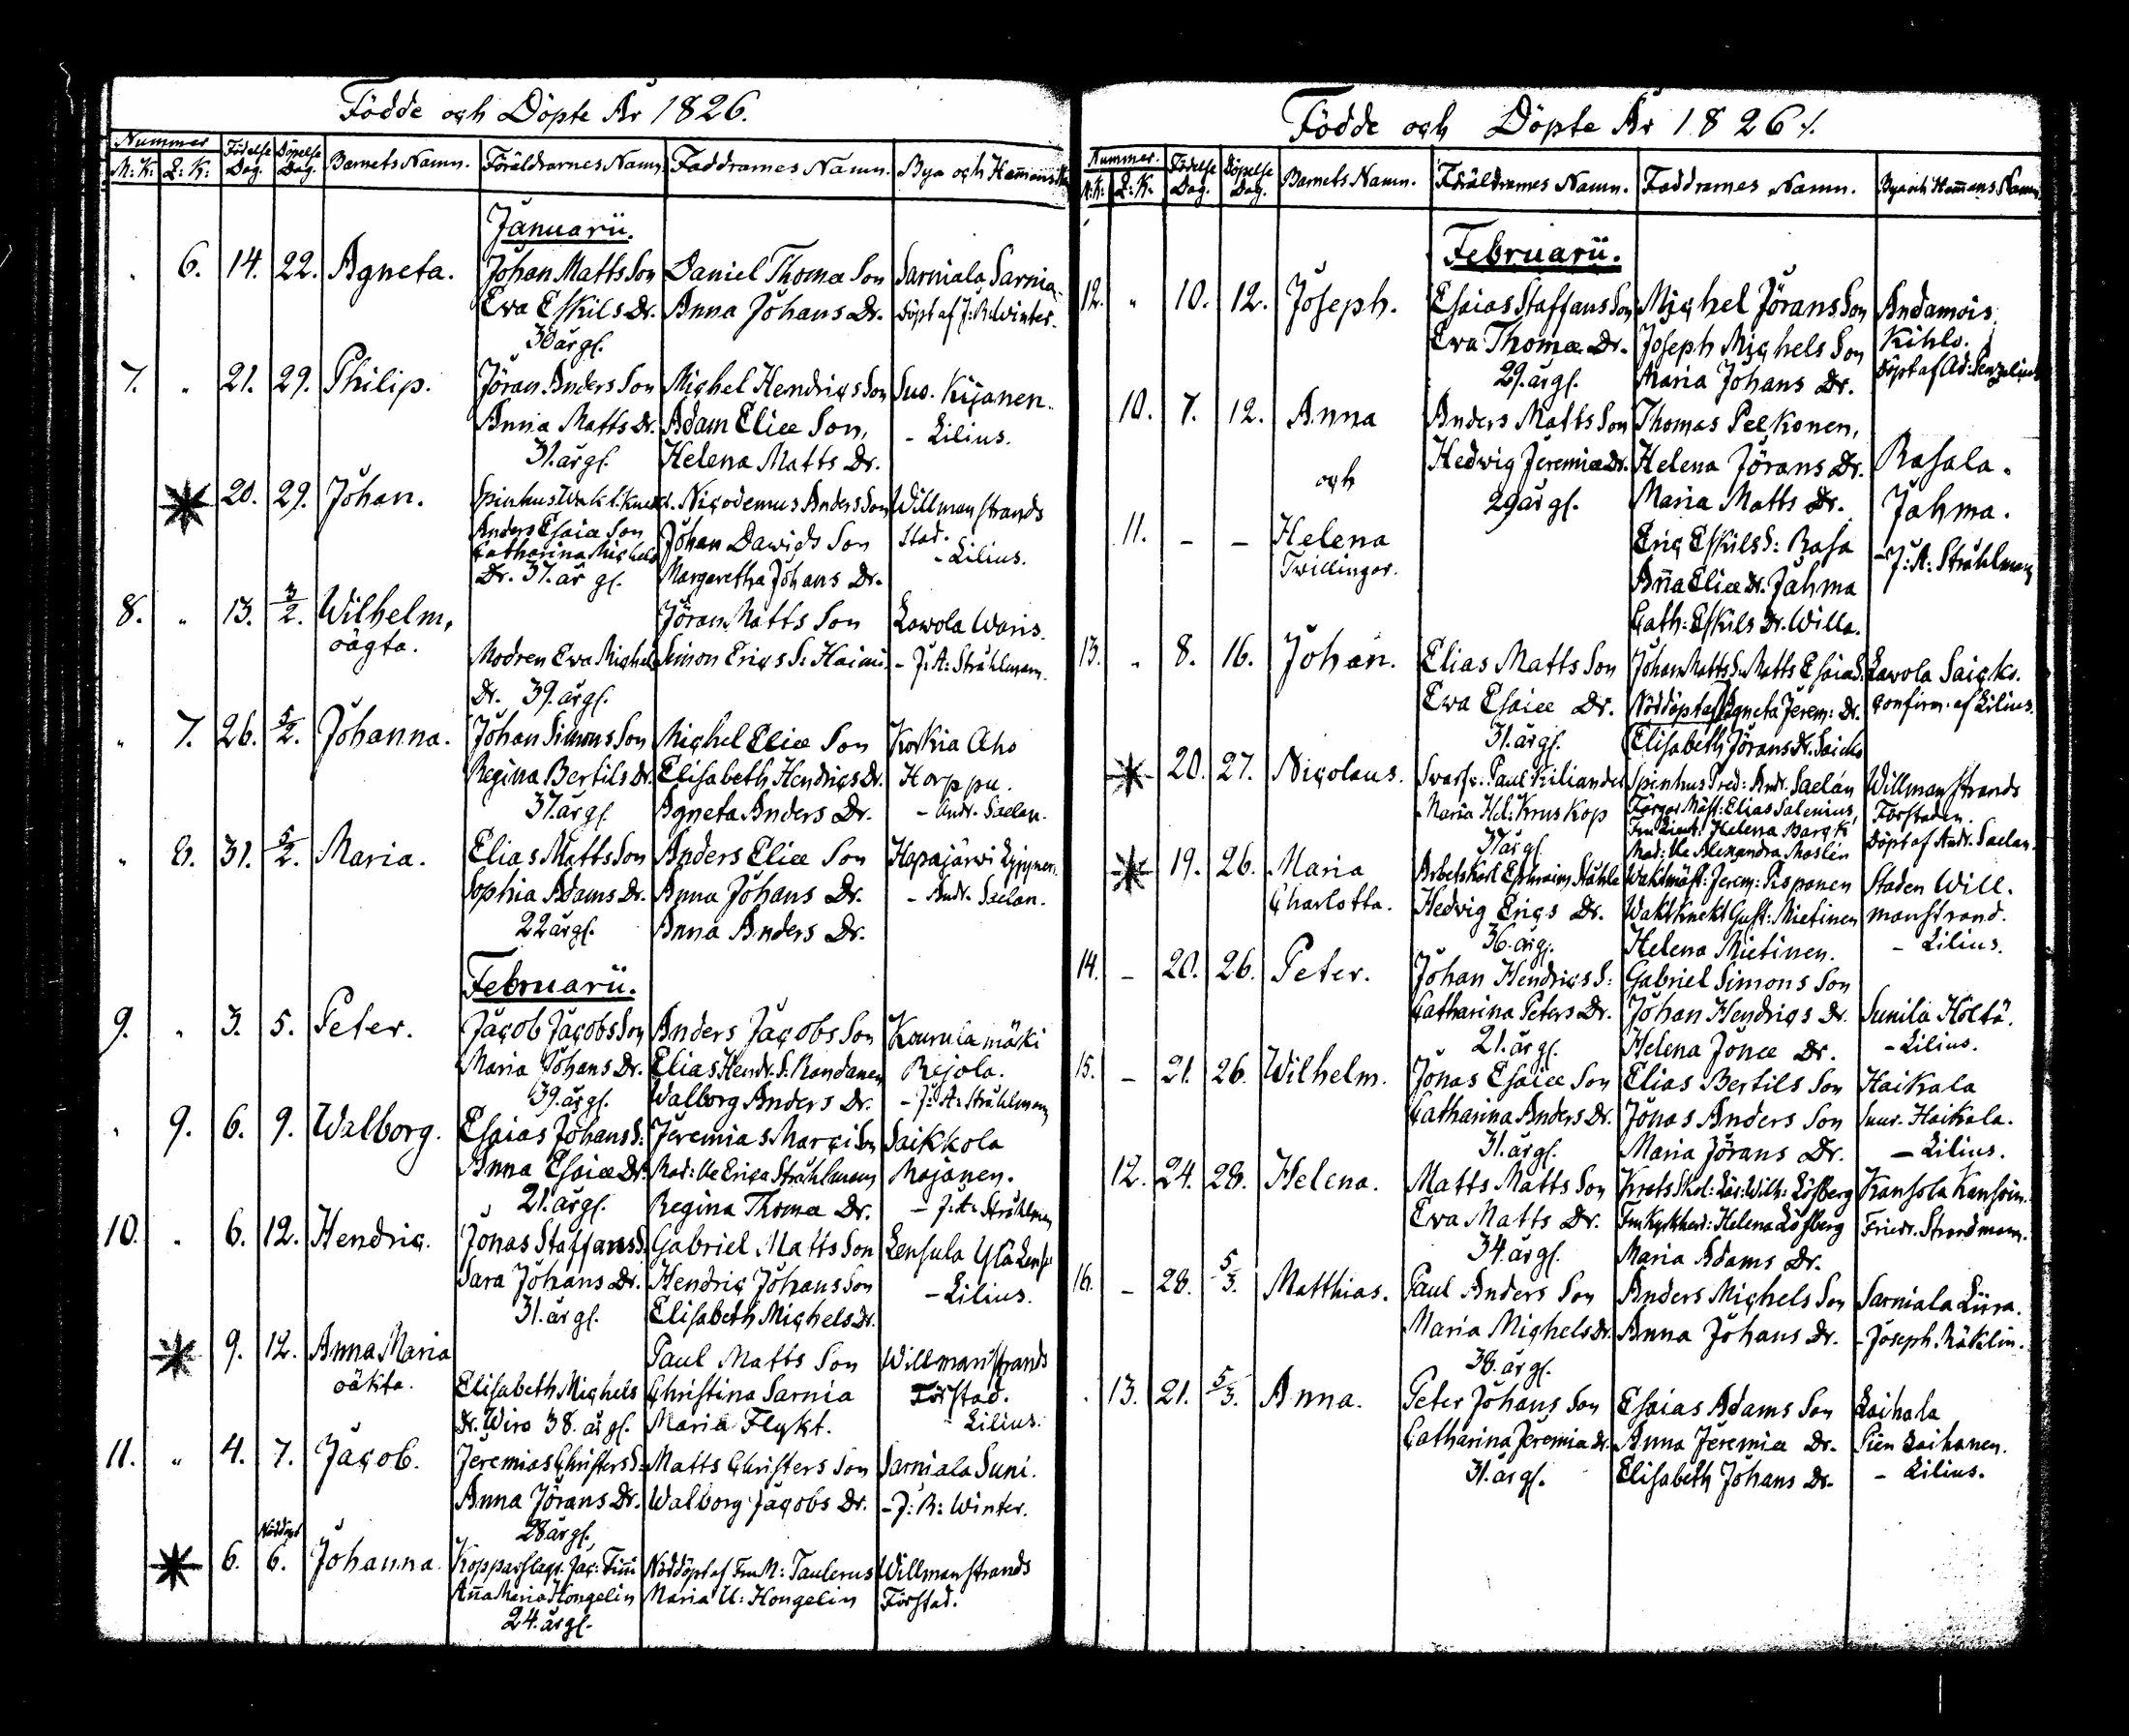 Födde och Döpte År 1826.
Nummer Födelse Dag. Döpelse Dag. Barnets Namn. Föräldrarnes Namn. Faddrarnes Namn. Bya och Hem̄ans
M: K: Q: K:
Januarii.
6. 14. 22. Agneta. Johan Matts Son Daniel Thomæ Son Sarviala Sarvia
Eva Eskils Dr. Anna Johans Dr. Döpt af J: R: Winter.
30 år gl.
7. „ 21. 29. Philip. Jöran Anders Son Michel Hendrics Son Suo. Kijanen.
Anna Matts Dr. Adam Eliæ Son, - Lilius.
31. år gl. Helena Matts Dr.
20. 29. Johan. Spinhus Wakt. Nicodemus Anders Son Willmanstrands
Anders Esaiæ Son Johan Dawids Son Stad.
Catharina Michels Margaretha Johans Dr. - Lilius.
Dr. 37. år gl.
8. „ 13. 3/2. Wilhelm, Jöran Matts Son Lavola Waris.
oägta. Modren Eva Michels Simon Erics S: Haimi - J: A: Stråhlman.
Dr. 39. år gl.
„ 7. 26. 5/2. Johanna. Johan Simons Son Michel Eliæ Son Korkia Aho
Regina Bertils Dr. Elisabeth Hendrics Dr. Horppu.
37. år gl. Agneta Anders Dr. - Andr. Saelan.
„ 8. 31. 5/2. Maria. Elias Matts Son Anders Eliæ Son Hapajärvi
Sophia Adams Dr. Anna Johans Dr. - Andr. Saelan.
22 år gl. Anna Anders Dr.
Februarii.
9. „ 3. 5. Peter. Jacob Jacobs Son Anders Jacobs Son Kourula mäki
Maria Johans Dr. Elias Hendr. S: Randanen Rejola.
39. år gl. Walborg Anders Dr. - J: A: Stråhlman
„ 9. 6. 9. Walborg. Esaias Johans S: Jeremias Marci Son Saikkola
Anna Esaiæ Dr. Mad: Ve Erica Stråhlman Mojanen.
21. år gl. Regina Thomæ Dr. - J: A: Stråhlman
10. „ 6. 12. Hendric. Jonas Staffans S. Gabriel Matts Son Lensula Ylä Lens:
Sara Johans Dr. Hendric Johans Son - Lilius.
31. år gl. Elisabeth Michels Dr.
9. 12. Anna Maria Paul Matts Son Willmanstrands
oäkta. Elisabeth Michels Christina Sarvia Förstad.
Dr. Wiro 38. år gl. Maria Flykt. Lilius.
11. „ 4. 7. Jacob. Jeremias Christers S: Matts Christers Son Sarviala Suni.
Anna Jörans Dr. Walborg Jacobs Dr. - J: R: Winter.
28 år gl.
Nöddöpt
6. 6. Johanna. Kopparslag. Jac: Nöddöpt af Fru M: Taulerus Willmanstrands
Ana Maria Hongelin Maria U: Hongelin Förstad.
24. år gl.
Födde och Döpte År 1826 /.
Nummer. Födelse Dag. Döpelse Dag. Barnets Namn. Föräldrarnes Namn. Faddrarnes Namn. Bya och Hem̄ans Namn
M: K: Q: K:
Februarii.
12. „ 10. 12. Joseph. Esaias Staffans Son Michel Jörans Son Andamois
Eva Thomæ Dr. Joseph Michels Son Kihlo.
29. år gl. Maria Johans Dr. Döpt af Ad:
10. 7. 12. Anna Anders Matts Son Thomas Pelkonen,
Hedwig Jeremiæ Dr. Helena Jörans Dr. Rasala.
och 29 år gl. Maria Matts Dr. Jahma.
11. - - Helena Eric Eskils S: Rasa - J: A: Stråhlman
Twillingar. Ana Eliæ Dr. Jahma
Cath: Eskils Dr. Willa.
13. „ 8. 16. Johan. Elias Matts Son Johan Matts S. Matts Esaiæ S. Lavola Saicko.
Eva Esaiæ Dr. Nöddöpt af Agneta Jerem: Dr. confirm. af Lilius.
31. år gl. Elisabeth Jörans Dr. Saicko
20. 27. Nicolaus. Svarfv. Paul Kiliander Spinhus Pred: Andr. Saelan Willmanstrands
Maria Hel: Kruskop Färgar Mäst: Elias Salenius, Förstaden.
37 år gl. Fru Lieut: Helena Barck Döpt af Andr. Saelan.
Mad: Ve Alexandra Moslin
19. 26. Maria Arbetskarl Ephraim Ståhle Waktmäst: Jerem: Pisponen Staden Will.
Charlotta. Hedvig Erics Dr. Waktknekt Gust: Mietinen manstrand.
36. år gl. Helena Mietinen. - Lilius.
14. - 20. 26. Peter. Johan Hendrics S: Gabriel Simons Son
Catharina Peters Dr. Johan Hendrics Dr. Sunila Höltä.
21. år gl. Helena Jonæ Dr. - Lilius.
15. - 21. 26. Wilhelm. Jonas Esaiæ Son Elias Bertils Son Haikala
Catharina Anders Dr. Jonas Anders Son Suur-Haikala.
31. år gl. Maria Jörans Dr. - Lilius.
12. 24. 28. Helena. Matts Matts Son Krets Skol: Lär: Wilh: Löfberg Kansola Kansoin.
Eva Matts Dr. Fru Kyrkherd: Helena Löfberg Friedr. Strandman.
34. år gl. Maria Adams Dr.
16. - 28. 5/3. Matthias. Paul Anders Son Anders Michels Son Sarviala Liira.
Maria Michels Dr. Anna Johans Dr. - Joseph. Räklin.
38. år gl.
13. 21. 5/3. Anna. Peter Johans Son Esaias Adams Son Laihala
Catharina Jeremiæ Dr. Anna Jeremiæ Dr. Pien Laihanen.
31. år gl. Elisabeth Johans Dr. - Lilius.